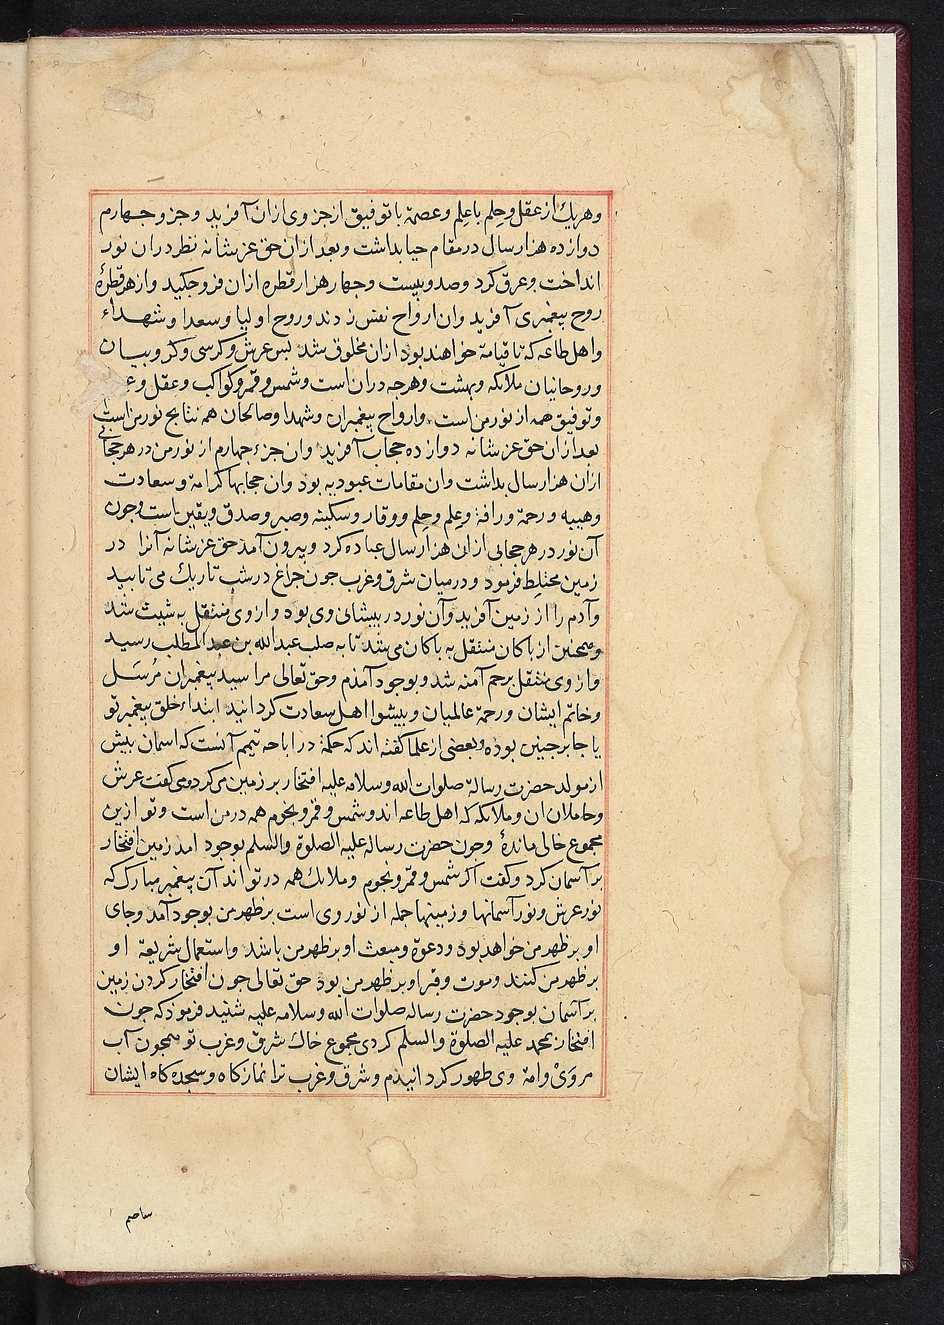 وهریك از عقل وحلم باعلم وعصمة باتوفیق ازجزوی ازان آفرید وجزو جهارم
دوازده هزار سال درمقام حیا بداشت وبعد ازان حق عزشانه نظر دران نور
انداخت وعرق کرد وصد وبیست وجهار هزار قطره ازان فرو جکید واز هر قطرهٔ
روح پیغمبری آفرید وان ارواح نفس زدند وروح اولیا وسعدا وشهداء
واهل طاعه که تا قیامة خواهند بود ازان مخلوق شد بس عرش وکرسی وکروبیان
وروحانیان ملائکه وبهشت وهرجه دران است وشمس وقمر وکواکب وعقل و
وتوفیق همه از نور من است وارواح پیغمبران وشهدا وصالحان همه نتایج نور من است
بعد ازان حق عزشانه دوازده حجاب آفرید وان جزء جهارم از نور من در هر حجابی
ازان هزار سال بداشت وان مقامات عبودیه بود وان حجابها کرامة وسعادت
وهیبه ورحمة ورافة وعلم وحلم ووقار وسکینه وصبر وصدق ویقین است وجون
آن نور در هر حجابی ازان هزار سال عباده کرد وبیرون آمد حق عزشانه آنرا در
زمین مختلط فرمود ودر میان شرق وغرب جون جراغ در شب تاریك می تابید
وآدم را از زمین آفرید وآن نور در بیشانی وی بود واز وی منتقل به شیث شد
وهمجنین از باکان منتقل به باکان می شد تا به صلب عبدالله بن عبد المطلب رسید
واز وی منتقل برحم آمنه شد وبوجود آمدم وحق تعالی مرا سید پیغمبران مُرسَل
وخاتم ایشان ورحمة عالمیان وبیشوا اهل سعادت کردانید ابتداء خلق بیغمبر تو
یا جابر جنین بوده وبعضی از علما کفته اند که حکمة در اباحه تیمم آنست که اسمان بیش
از مولد حضرت رسالة صلوات الله وسلامه علیه افتخار بر زمین می کرد ومی کفت عرش
وحاملان ان وملائکه که اهل طاعه اند وشمس وقمر ونجوم همه در من است وتو ازین
مجموع خالی ماندهٔ وجون حضرت رساله علیه الصلوة والسلم بوجود امد زمین افتخار
بر آسمان کرد وکفت اکر شمس وقمر ونجوم وملائك همه در تو اند آن پیغمبر مبارك که
نور عرش ونور آسمانها وزمینها جمله از نور وی است بر ظهر من بوجود آمد وجای
او بر ظهر من خواهد بود ودعوة ومبعث او بر ظهر من باشد واستعمال شریعة او
بر ظهر من کنند وموت وقبر او بر ظهر من بود حق تعالی جون افتخار کردن زمین
بر آسمان بوجود حضرت رساله صلوات الله وسلامه علیه شنید فرمود که جون
افتخار بمحمد علیه الصلوة والسلم کردی مجموع خاك شرق وغرب تو همجون آب
مر وی وامة وی طهور کردانیدم وشرق وغرب ترا نمازکاه وسجده کاه ایشان